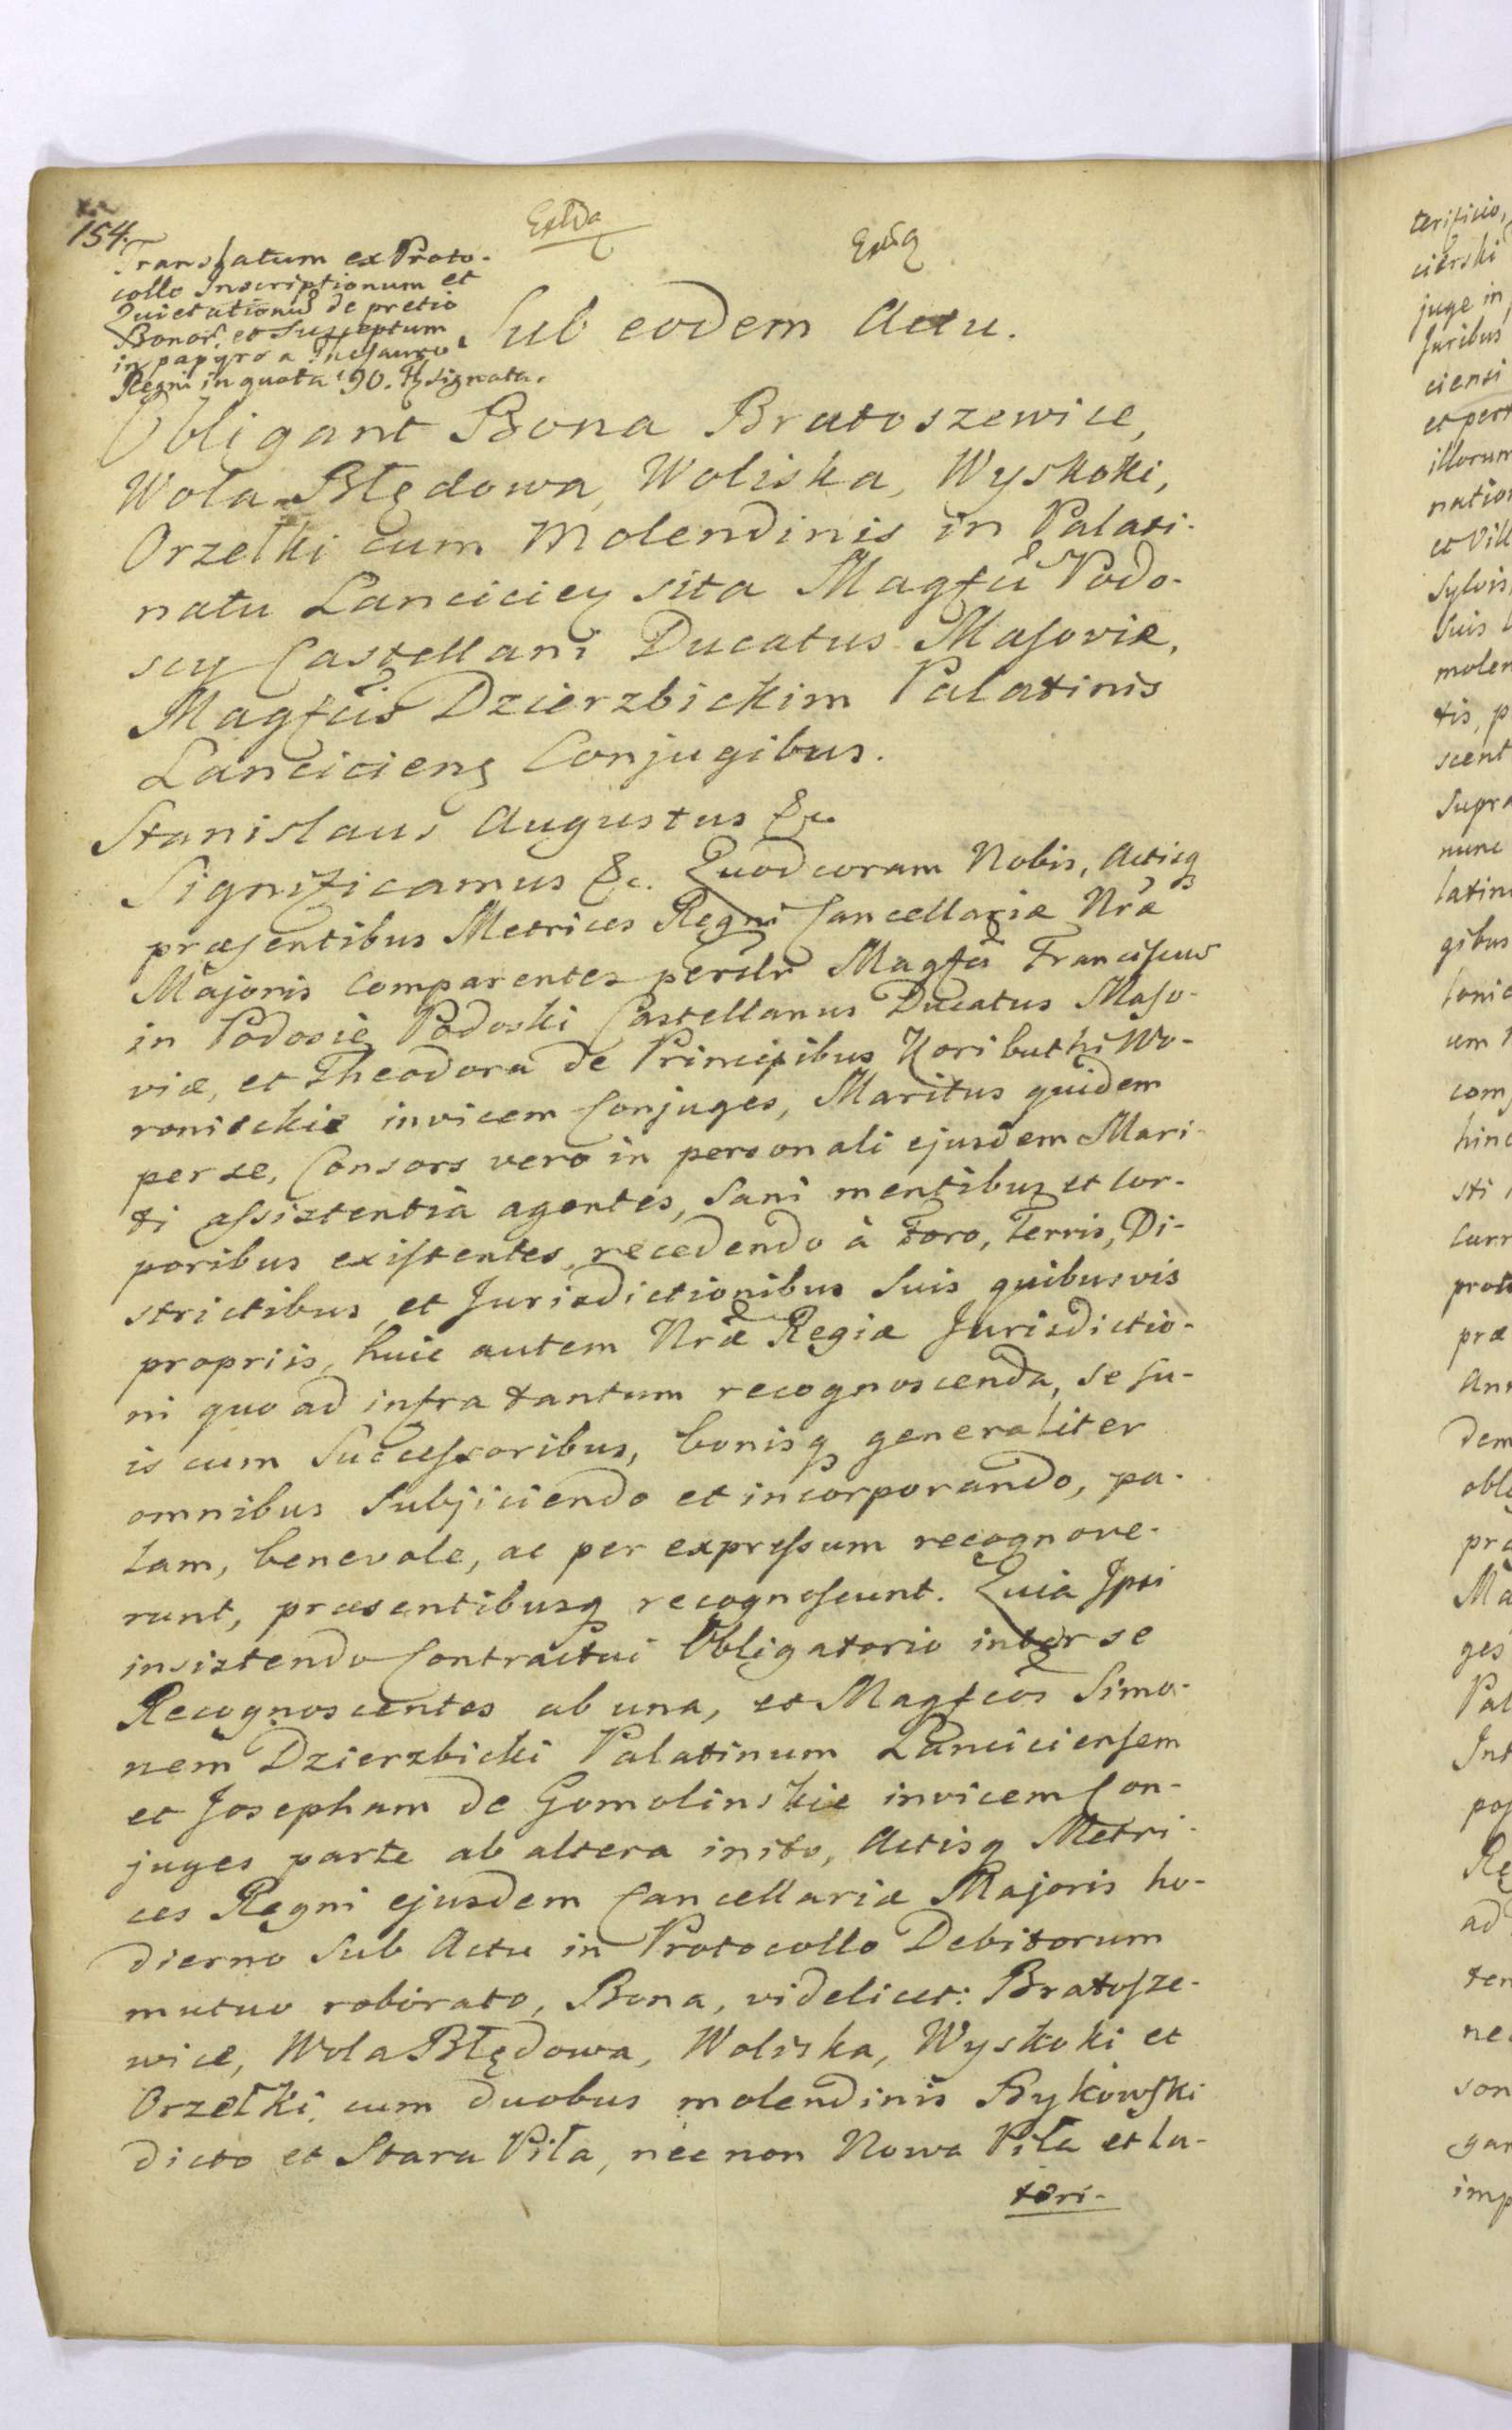 154.
Extda
Extda
Translatum ex Proto-
collo Inscriptionum et
Quietationũ de pretio
Bonor. et Susceptum
in papyro a Thesauro
Regni in quota 190. signata.
Sub eodem Actu.
Obligant Bona Bratoszewice,
Wola Błędowa, Woliska, Wyskoki,
Orzełki cum Molendinis in Palati-
natu Lanciciey sita Magfcũ Podo-
scy Castellani Ducatus Masoviæ,
Magfcis Dzierzbickim Palatinis
Lancicieng Conjugibus.
Stanislaus Augustus &c.
Significamus &c. Quod coram Nobis, Actisq
præsentibus Metrices Regni Cancellariæ Nrã
Majoris Comparentes perslr Magfcũ Franciscus
in Podosiè Podoski Castellanus Ducatus Maso-
viæ, et Theodora de Principibus Koributhi Wo-
ronieckie invicem Conjuges, Maritus quidem
per se, Consors vero in personali ejusdem Mari-
ti assistentià agentes, Sani mentibus et Cor-
poribus existentes, recedendo à Foro, Terris, Di-
strictibus, et Jurisdictionibus Suis quibusvis
propriis, huic autem Nræ Regiæ Jurisdictio-
ni quo ad infra tantum recognoscenda, se su-
is cum Successoribus, bonisq generaliter
omnibus Subjiciendo et incorporando, pa-
lam, benevole, ac per expressum recognove-
runt, præsentibusq recognoscunt. Quia Ipsi
insistendo Contractui Obligatorio inter se
Recognoscentes ab una, et Magfcos Simo-
nem Dzierzbicki Palatinum Lanciciensem
et Josepham de Gomolinskie invicem Con-
juges parte ab altera inito, Actisq Metri-
ces Regni ejusdem Cancellariæ Majoris ho-
dierno Sub Actu in Protocollo Debitorum
mutuo roborato, Bona, videlicet: Bratosze-
wice, Wola Błędowa, Woliska, Wyskoki et
Orzełki, cum duobus molendinis Bykowski
dicto et Stara Piła, nec non Nowa Piła et la-
teri-
terificio,
cierski
juge in
Juribus
ciensi
et pert
illorum
natio
et Vill
Sylvis,
Suis
molen
tis, p
scent
Supra
nunc
latin
gibus
um
com
hinc
sti
Curr
prot
præ
An
dem
obl
Ma
ges
Pal
Int
pos
Re
ad
ter
ne
son
gar
imp